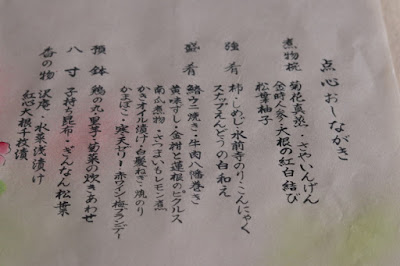 点心おしながき
煮物椀 菊花真蒸・さやいんげん
金時人参・大根の紅白結び
松葉柚子
強肴 柿・しめじ・水前寺のり・こんにゃく
スナップえんどうの白和え
盛肴 鰆ウニ焼き・牛肉八幡巻き
黄味すし・金柑と蓮根のピクルス
南瓜煮物・さつまいもレモン煮
かきオイル漬け・白髪ねぎ・焼のり
かまぼこ・寒天ゼリー赤ワイン梅ブランデー
預鉢 鶏の丸・里芋・菊菜の炊きあわせ
八寸 子持ち昆布・ぎんなん松葉
香の物 沢庵・水菜浅漬け
紅心大根千枚漬